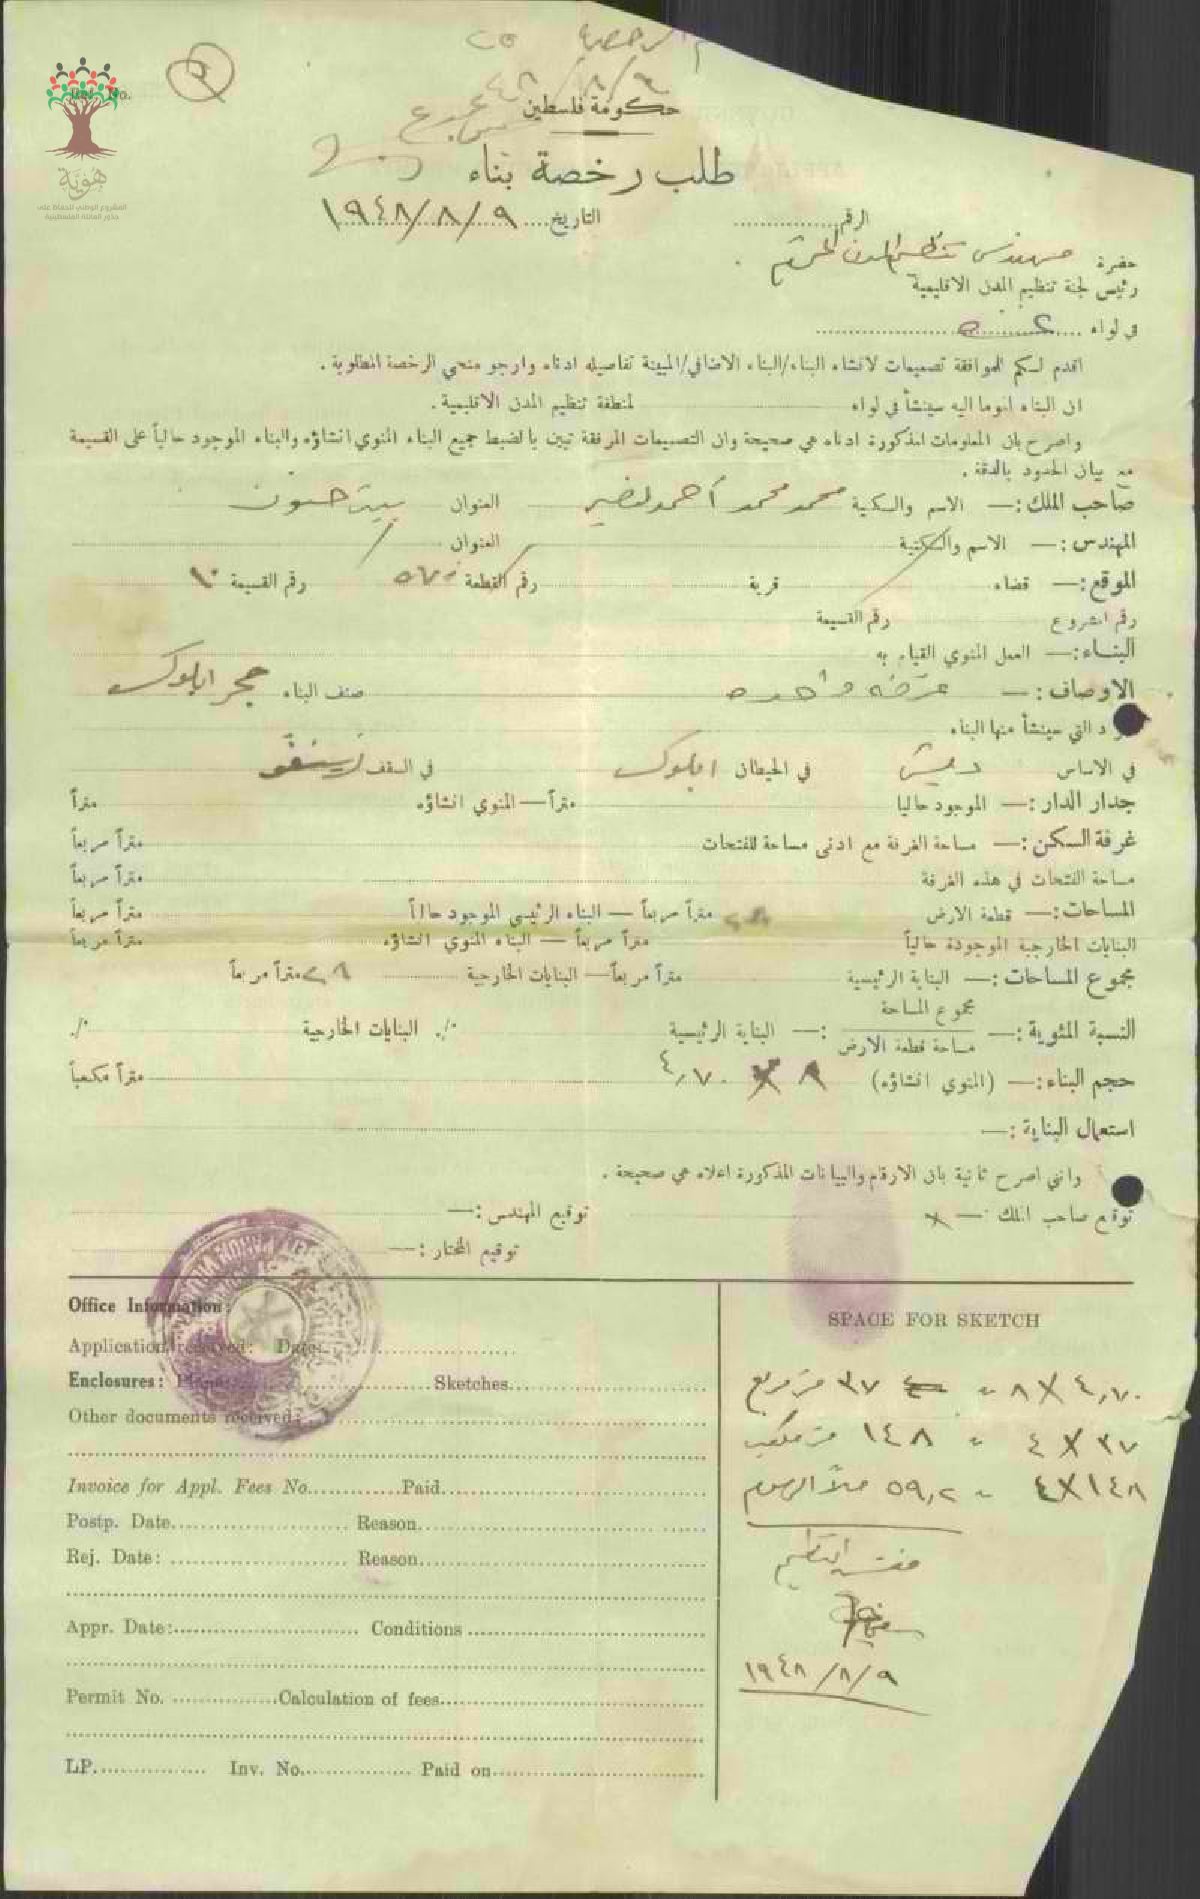 الرخصة ٢٥
٤٨/٨/٩
Ref. No.
هوية
المشروع الوطني للحفاظ على
جذور العائلة الفلسطينية
حكومة فلسطين
طلب رخصة بناء
الرقم
التاريخ ١٩٤٨/٨/٩
حضرة مهندس تنظيم المدن المحترم
رئيس لجنة تنظيم المدن الاقليمية
في لواء غزة
اقدم لكم للموافقة تصميمات لانشاء البناء/البناء الاضافي/المبينة تفاصيله ادناه وارجو منحي الرخصة المطلوبة .
ان البناء الموما اليه سينشأ في لواء لمنطقة تنظيم المدن الاقليمية .
واصرح بان المعلومات المذكورة ادناه هي صحيحة وان التصميمات المرفقة تبين بالضبط جميع البناء المنوي انشاؤه والبناء الموجود حالياً على القسيمة
مع بيان الحدود بالدقة .
صاحب الملك :— الاسم والكنية محمد محمد أحمد نصير العنوان بيت حنون
المهندس :— الاسم والكنية العنوان
الموقع :— قضاء قرية رقم القطعة ٥٧٠ رقم القسيمة ١٠
رقم المشروع رقم القسيمة
البناء :— العمل المنوي القيام به
الاوصاف :— غرفة واحدة صنف البناء حجر ابلوك
المواد التي سينشأ منها البناء
في الاساس دبش في الحيطان ابلوك في السقف زينقو
جدار الدار :— الموجود حاليا متراً — المنوي انشاؤه متراً
غرفة السكن :— مساحة الغرفة مع ادنى مساحة للفتحات متراً مربعاً
مساحة الفتحات في هذه الغرفة متراً مربعاً
المساحات :— قطعة الارض متراً مربعاً — البناء الرئيسي الموجود حالاً متراً مربعاً
البنايات الخارجية الموجودة حالياً متراً مربعاً — البناء المنوي انشاؤه متراً مربعاً
مجموع المساحات :— البناية الرئيسية متراً مربعاً — البنايات الخارجية متراً مربعاً
النسبة المئوية :— مجموع المساحة
مساحة قطعة الارض :— البناية الرئيسية ٠/. البنايات الخارجية ٠/.
حجم البناء :— (المنوي انشاؤه) ٨ X ٤,٧٠ متراً مكعباً
استعمال البناية :—
وانني اصرح ثانية بان الارقام والبيانات المذكورة اعلاه هي صحيحة .
توقيع صاحب الملك :— توقيع المهندس :—
توقيع المختار :—
Office Information:
Application received: Date
Enclosures: Plans Sketches
Other documents received:
Invoice for Appl. Fees No. Paid
Postp. Date Reason
Rej. Date: Reason
Appr. Date: Conditions
Permit No. Calculation of fees
LP. Inv. No. Paid on
SPACE FOR SKETCH
٤,٧٠ X ٨ = ٣٧ متر مربع
٣٧ X ٤ = ١٤٨ متر مكعب
١٤٨ X ٤ = ٥٩,٢ ملاً الرسوم
مفتش التنظيم
١٩٤٨/٨/٩